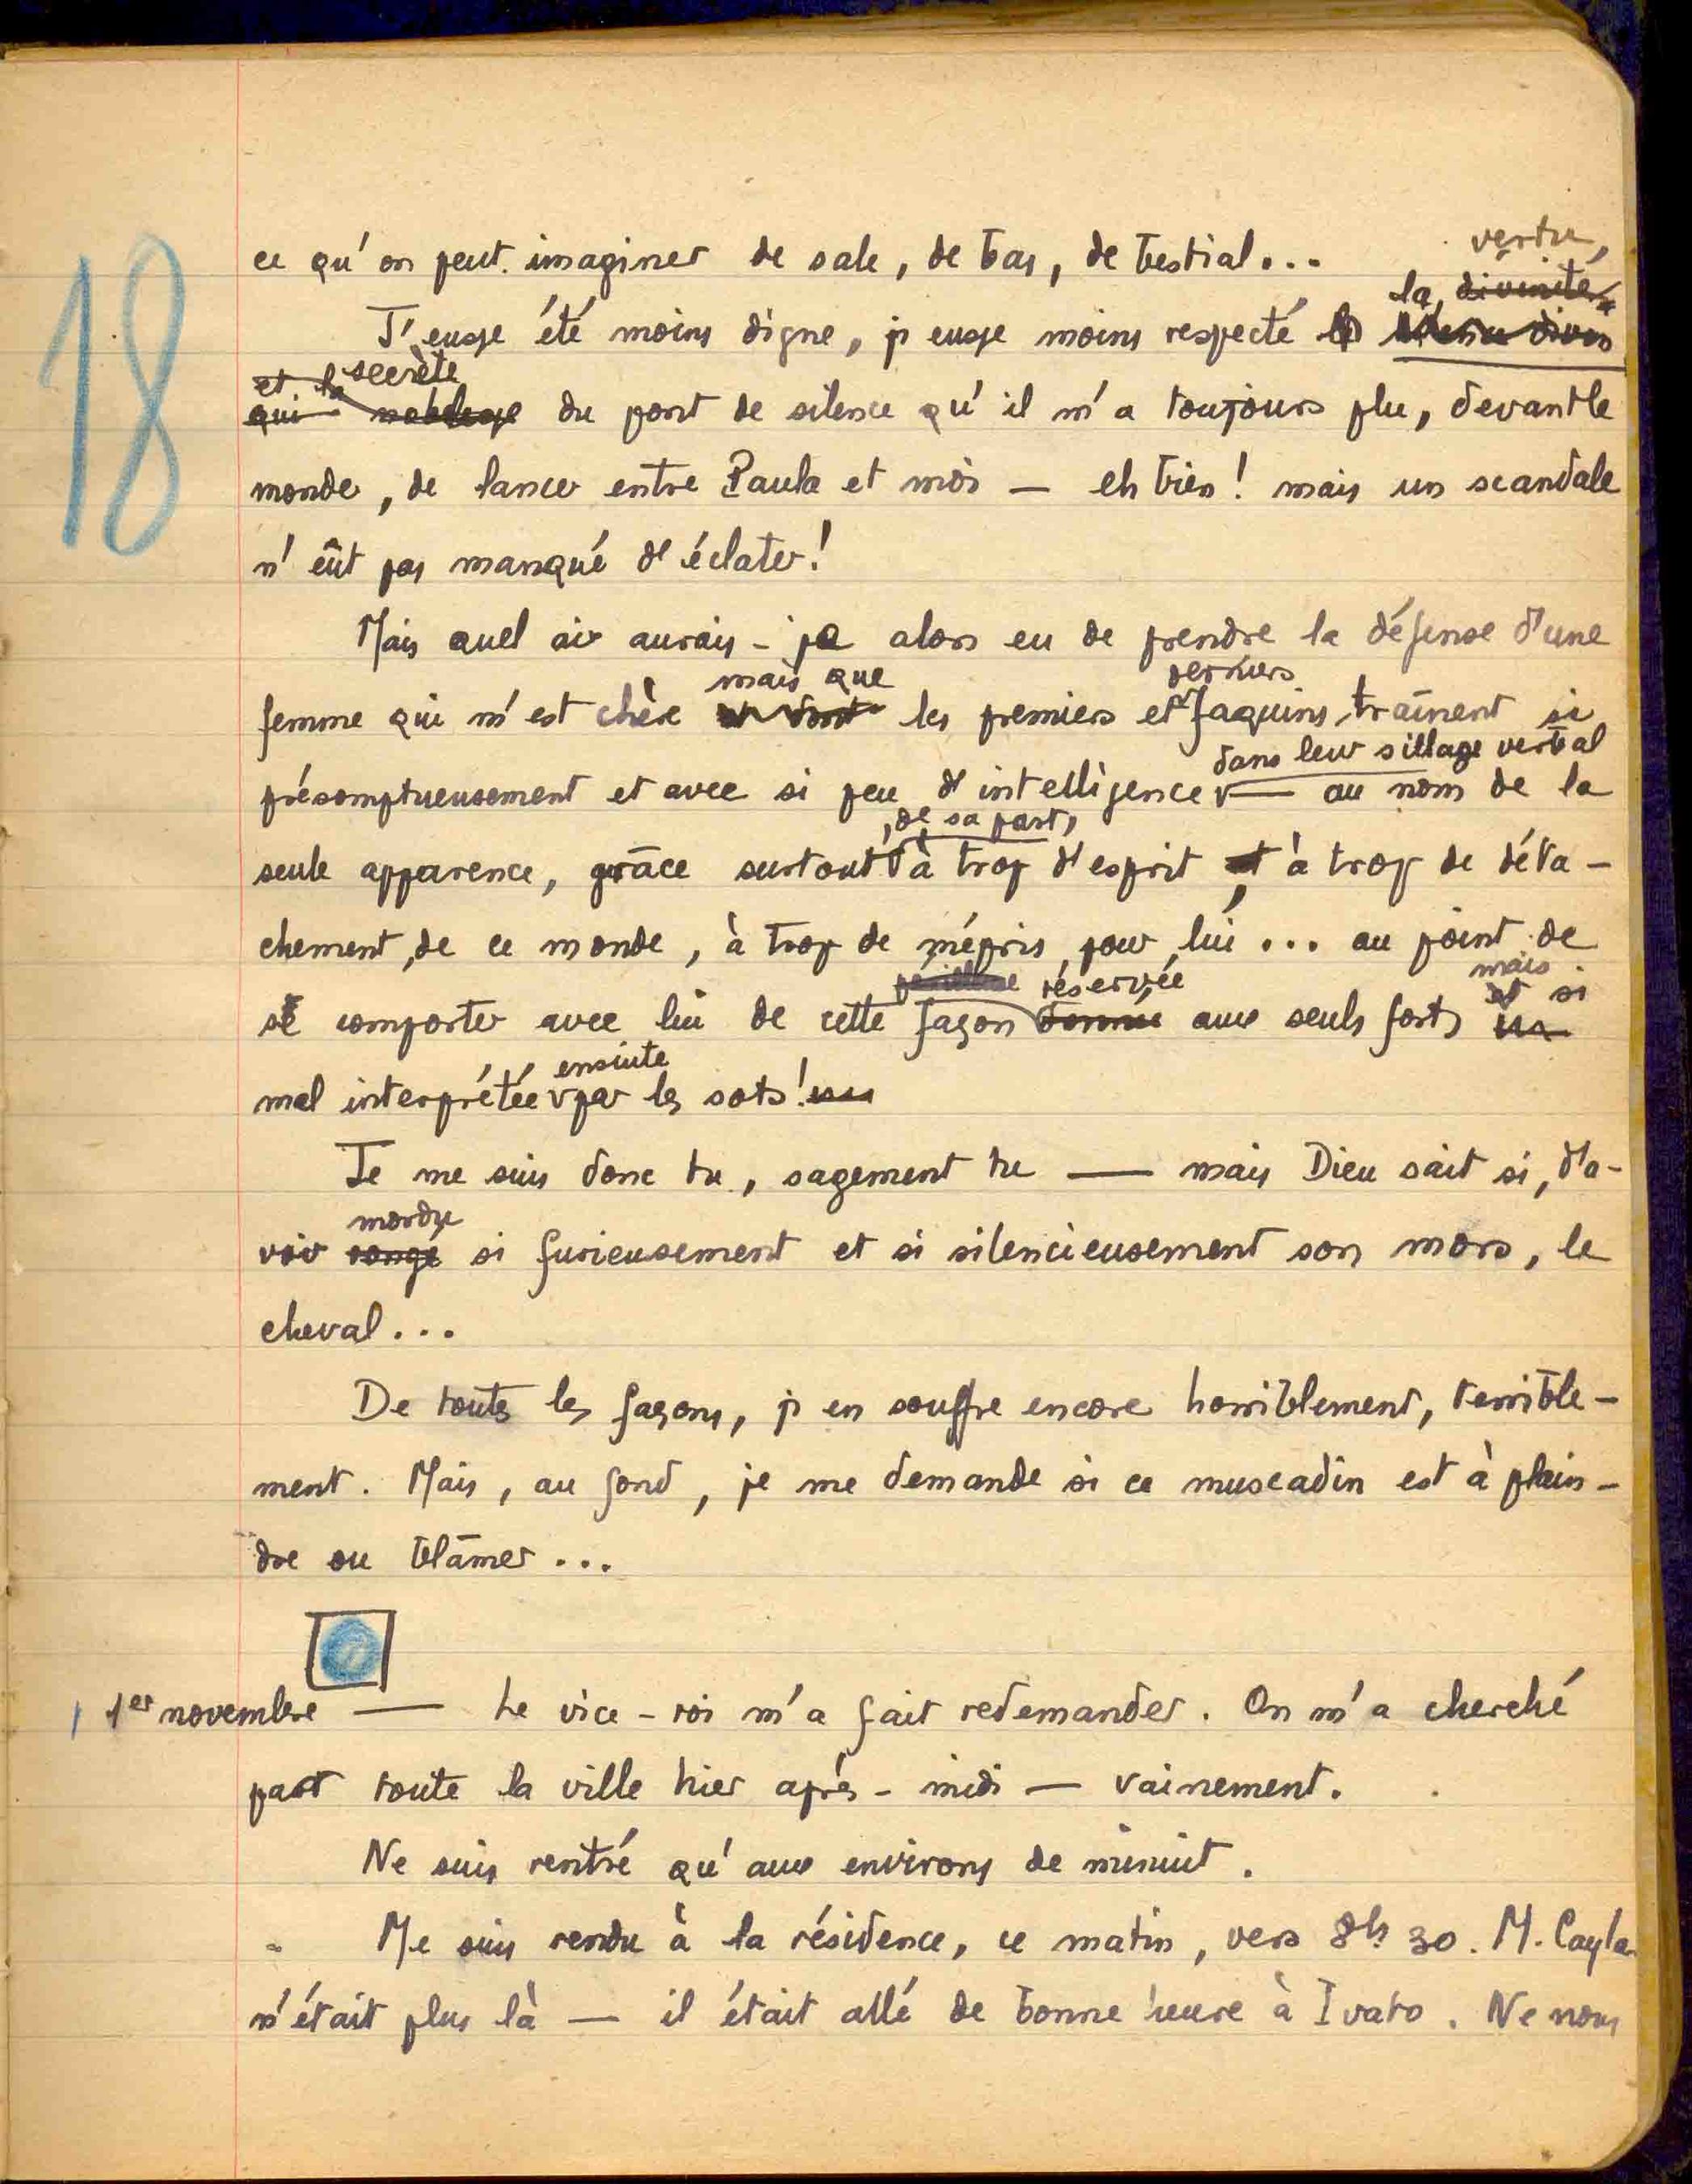 18
ce qu'on peut imaginer de sale, de bas, de bestial...
vertu,
la divinité
J'eusse été moins digne, j'eusse moins respecté
et la secrète
qui noblesse du pont de silence qu'il m'a toujours plu, devant le
monde, de lancer entre Paula et moi — eh bien! mais un scandale
n'eût pas manqué d'éclater!
Mais quel air aurais-je alors eu de prendre la défense d'une
mais que derniers
femme qui m'est chère et dont les premiers et faquins traînent si
dans leur sillage verbal
présomptueusement et avec si peu d'intelligence — au nom de la
, de sa part,
seule apparence, grâce surtout à trop d'esprit et à trop de déta-
chement, de ce monde, à trop de mépris pour lui... au point de
réservée mais
et si
se comporter avec lui de cette façon aux seuls forts
ensuite
mal interprétée par les sots!
Je me suis donc tu, sagement tu — mais Dieu sait si, d'a-
mordu
voir rongé si furieusement et si silencieusement son mors, le
cheval...
De toutes les façons, j'en souffre encore horriblement, terrible-
ment. Mais, au fond, je me demande si ce muscadin est à plain-
dre ou blâmer...
1er novembre — Le vice-roi m'a fait redemander. On m'a cherché
part toute la ville hier après-midi — vainement.
Ne suis rentré qu'aux environs de minuit.
Me suis rendu à la résidence, ce matin, vers 8h 30. M. Cayla
n'était plus là — il était allé de bonne heure à Ivato. Ne nous